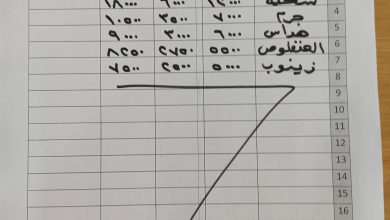 ١٢٠٠٠ ٦٠٠٠ ١٨٠٠٠
4 جرم ٧٠٠٠ ٣٥٠٠ ١٠٥٠٠
5 هداس ٦٠٠٠ ٣٠٠٠ ٩٠٠٠
6 العنفلوص ٥٥٠٠ ٢٧٥٠ ٨٢٥٠
7 زينوب ٥٠٠٠ ٢٥٠٠ ٧٥٠٠
8
9
10
11
12
13
14
15
16